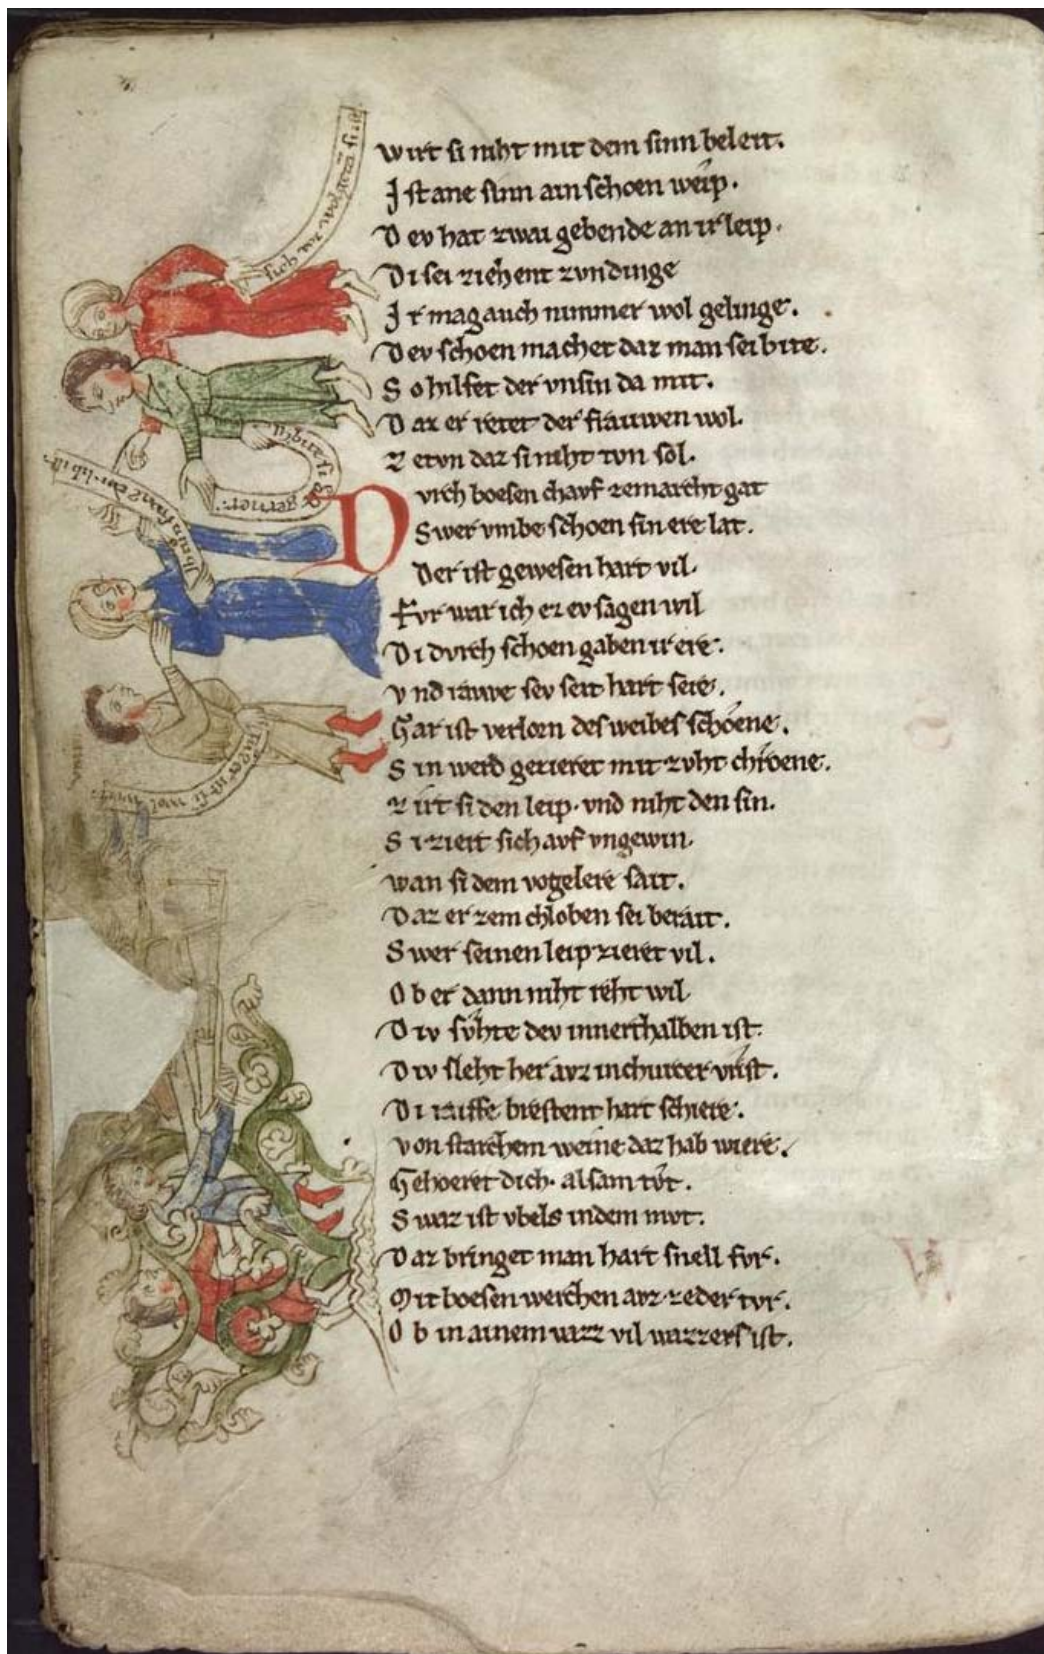 wirt si niht mit dem sinn beleit.
Ist ane sinn ain schoen weip.
Dev hat zwai gebende an ir leip.
Di sei ziehent zvndinge
Ir mag auch nimmer wol gelinge.
Dev schoen machet daz man sei bite.
So hilfet der vnsin da mit.
Daz er retet der frauwen wol.
Zetvn daz si niht tvn sol.
Dvrch boesen chavf zemarcht gat
Swer vmbe schoen sin ere lat.
Der ist gewesen hart vil.
Fvr war ich ez ev sagen wil
Di dvrch schoen gaben ir ere.
vnd rauwe sev seit hart sere.
Gar ist verlorn des weibes schoene.
Sin werd gezieret mit zvht chroene.
Zirt si den leip. vnd niht den sin.
Si zieit sich avf vngewin.
wan si dem vogelere sait.
Daz er zem chloben sei berait.
Swer seinen leip zieret vil.
Ob er dann niht reht wil
Div svhte dev innerthalben ist.
Div sleht her avz in churcer vrist.
Di raiffe brestent hart schiere.
von starchem weine daz hab wiere.
Gehoeret dich. alsam tvt.
Swaz ist vbels in dem mvt.
Daz bringet man hart snell fvr.
Mit boesen werchen avz zeder tvr.
Ob in ainem vazz vil wazzers ist.